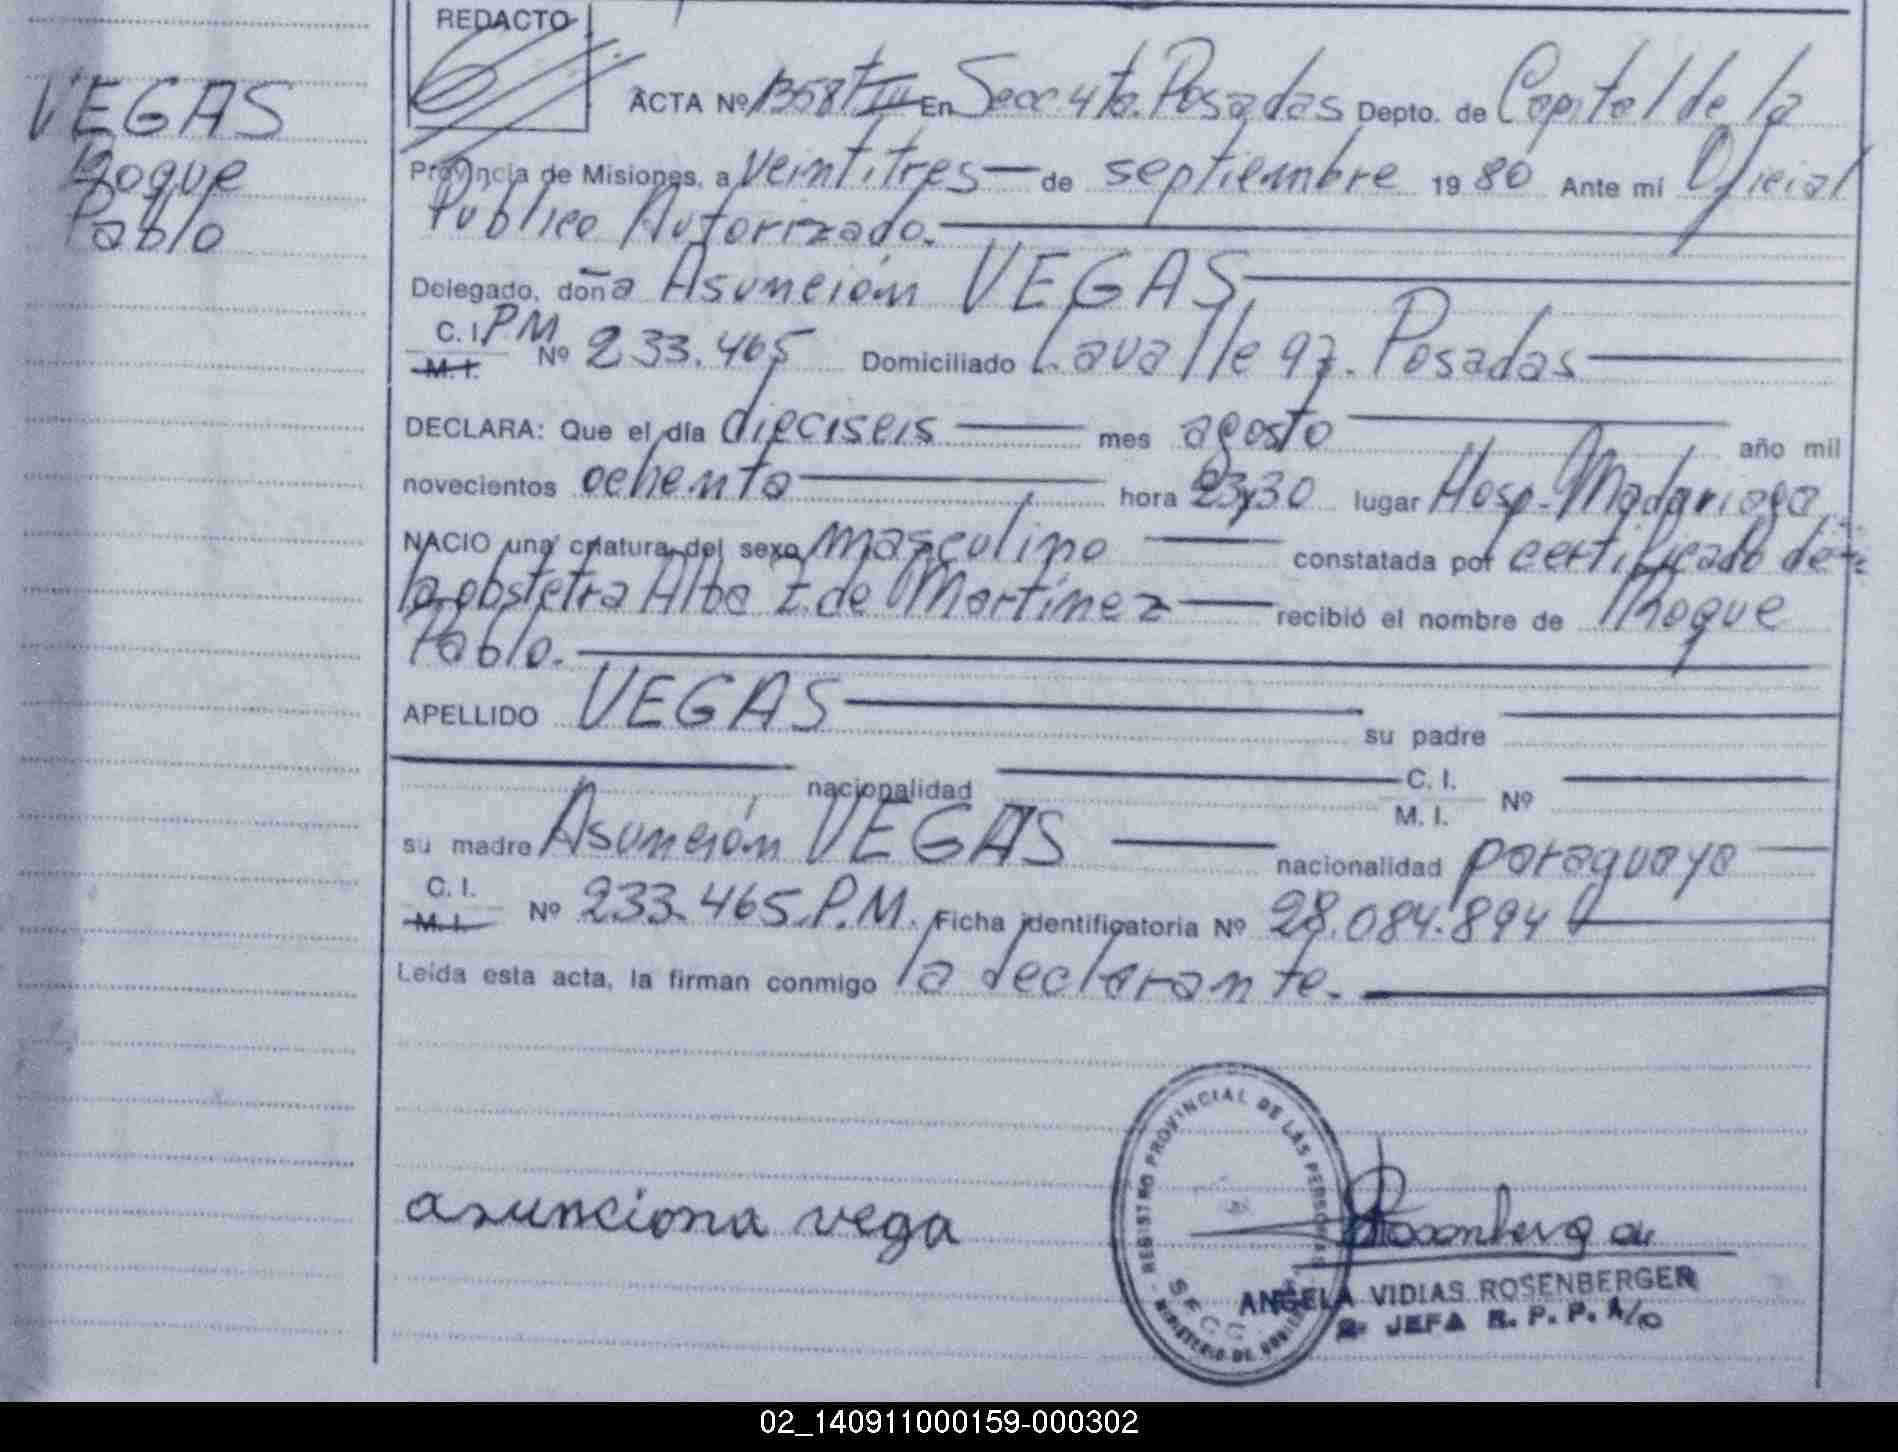 REDACTO
VEGAS
Roque
Pablo
ACTA Nº 1358 tº III En Secc 4ta. Posadas Depto. de Capital de la
Provincia de Misiones, a veintitres de septiembre 1980 Ante mí Oficial
Publico Autorizado.
Delegado, doña Asunción VEGAS
C. I. P.M.
M. I. Nº 233.465 Domiciliado Lavalle 97. Posadas
DECLARA: Que el día dieciseis mes agosto año mil
novecientos ochenta hora 23,30 lugar Hosp. Madariaga
NACIO una criatura del sexo masculino constatada por certificado de
la obstetra Alba Z. de Martinez recibió el nombre de Roque
Pablo.
APELLIDO VEGAS su padre
nacionalidad C. I.
M. I. Nº
su madre Asunción VEGAS nacionalidad paraguaya
C. I.
M. I. Nº 233.465.P.M. Ficha identificatoria Nº 28.084.894
Leída esta acta, la firman conmigo la declarante.
REGISTRO PROVINCIAL DE LAS PERSONAS
MINISTERIO DE GOBIERNO
asunciona vega
ANGELA VIDIAS ROSENBERGER
JEFA R. P. P. A/C
02_140911000159-000302